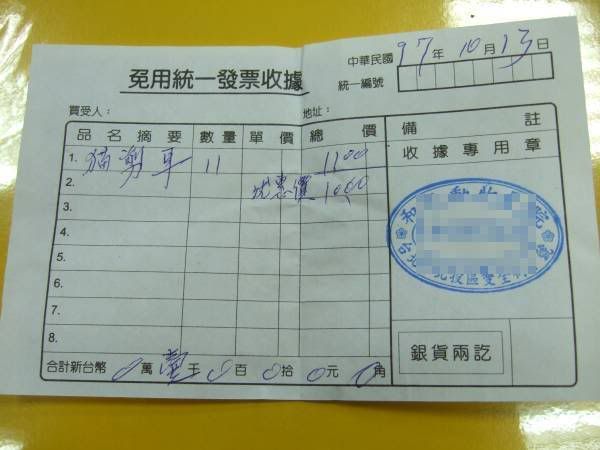 免用統一發票收據
中華民國 97 年 10 月 13 日
統一編號
買受人: 地址:
品名摘要 數量 單價 總價 備註
收據專用章
1. 猫剪耳 11 1100
2. 優惠價 1000
3.
4.
5.
6.
7.
8.
銀貨兩訖
合計新台幣 0 萬 壹 千 0 百 0 拾 0 元 0 角